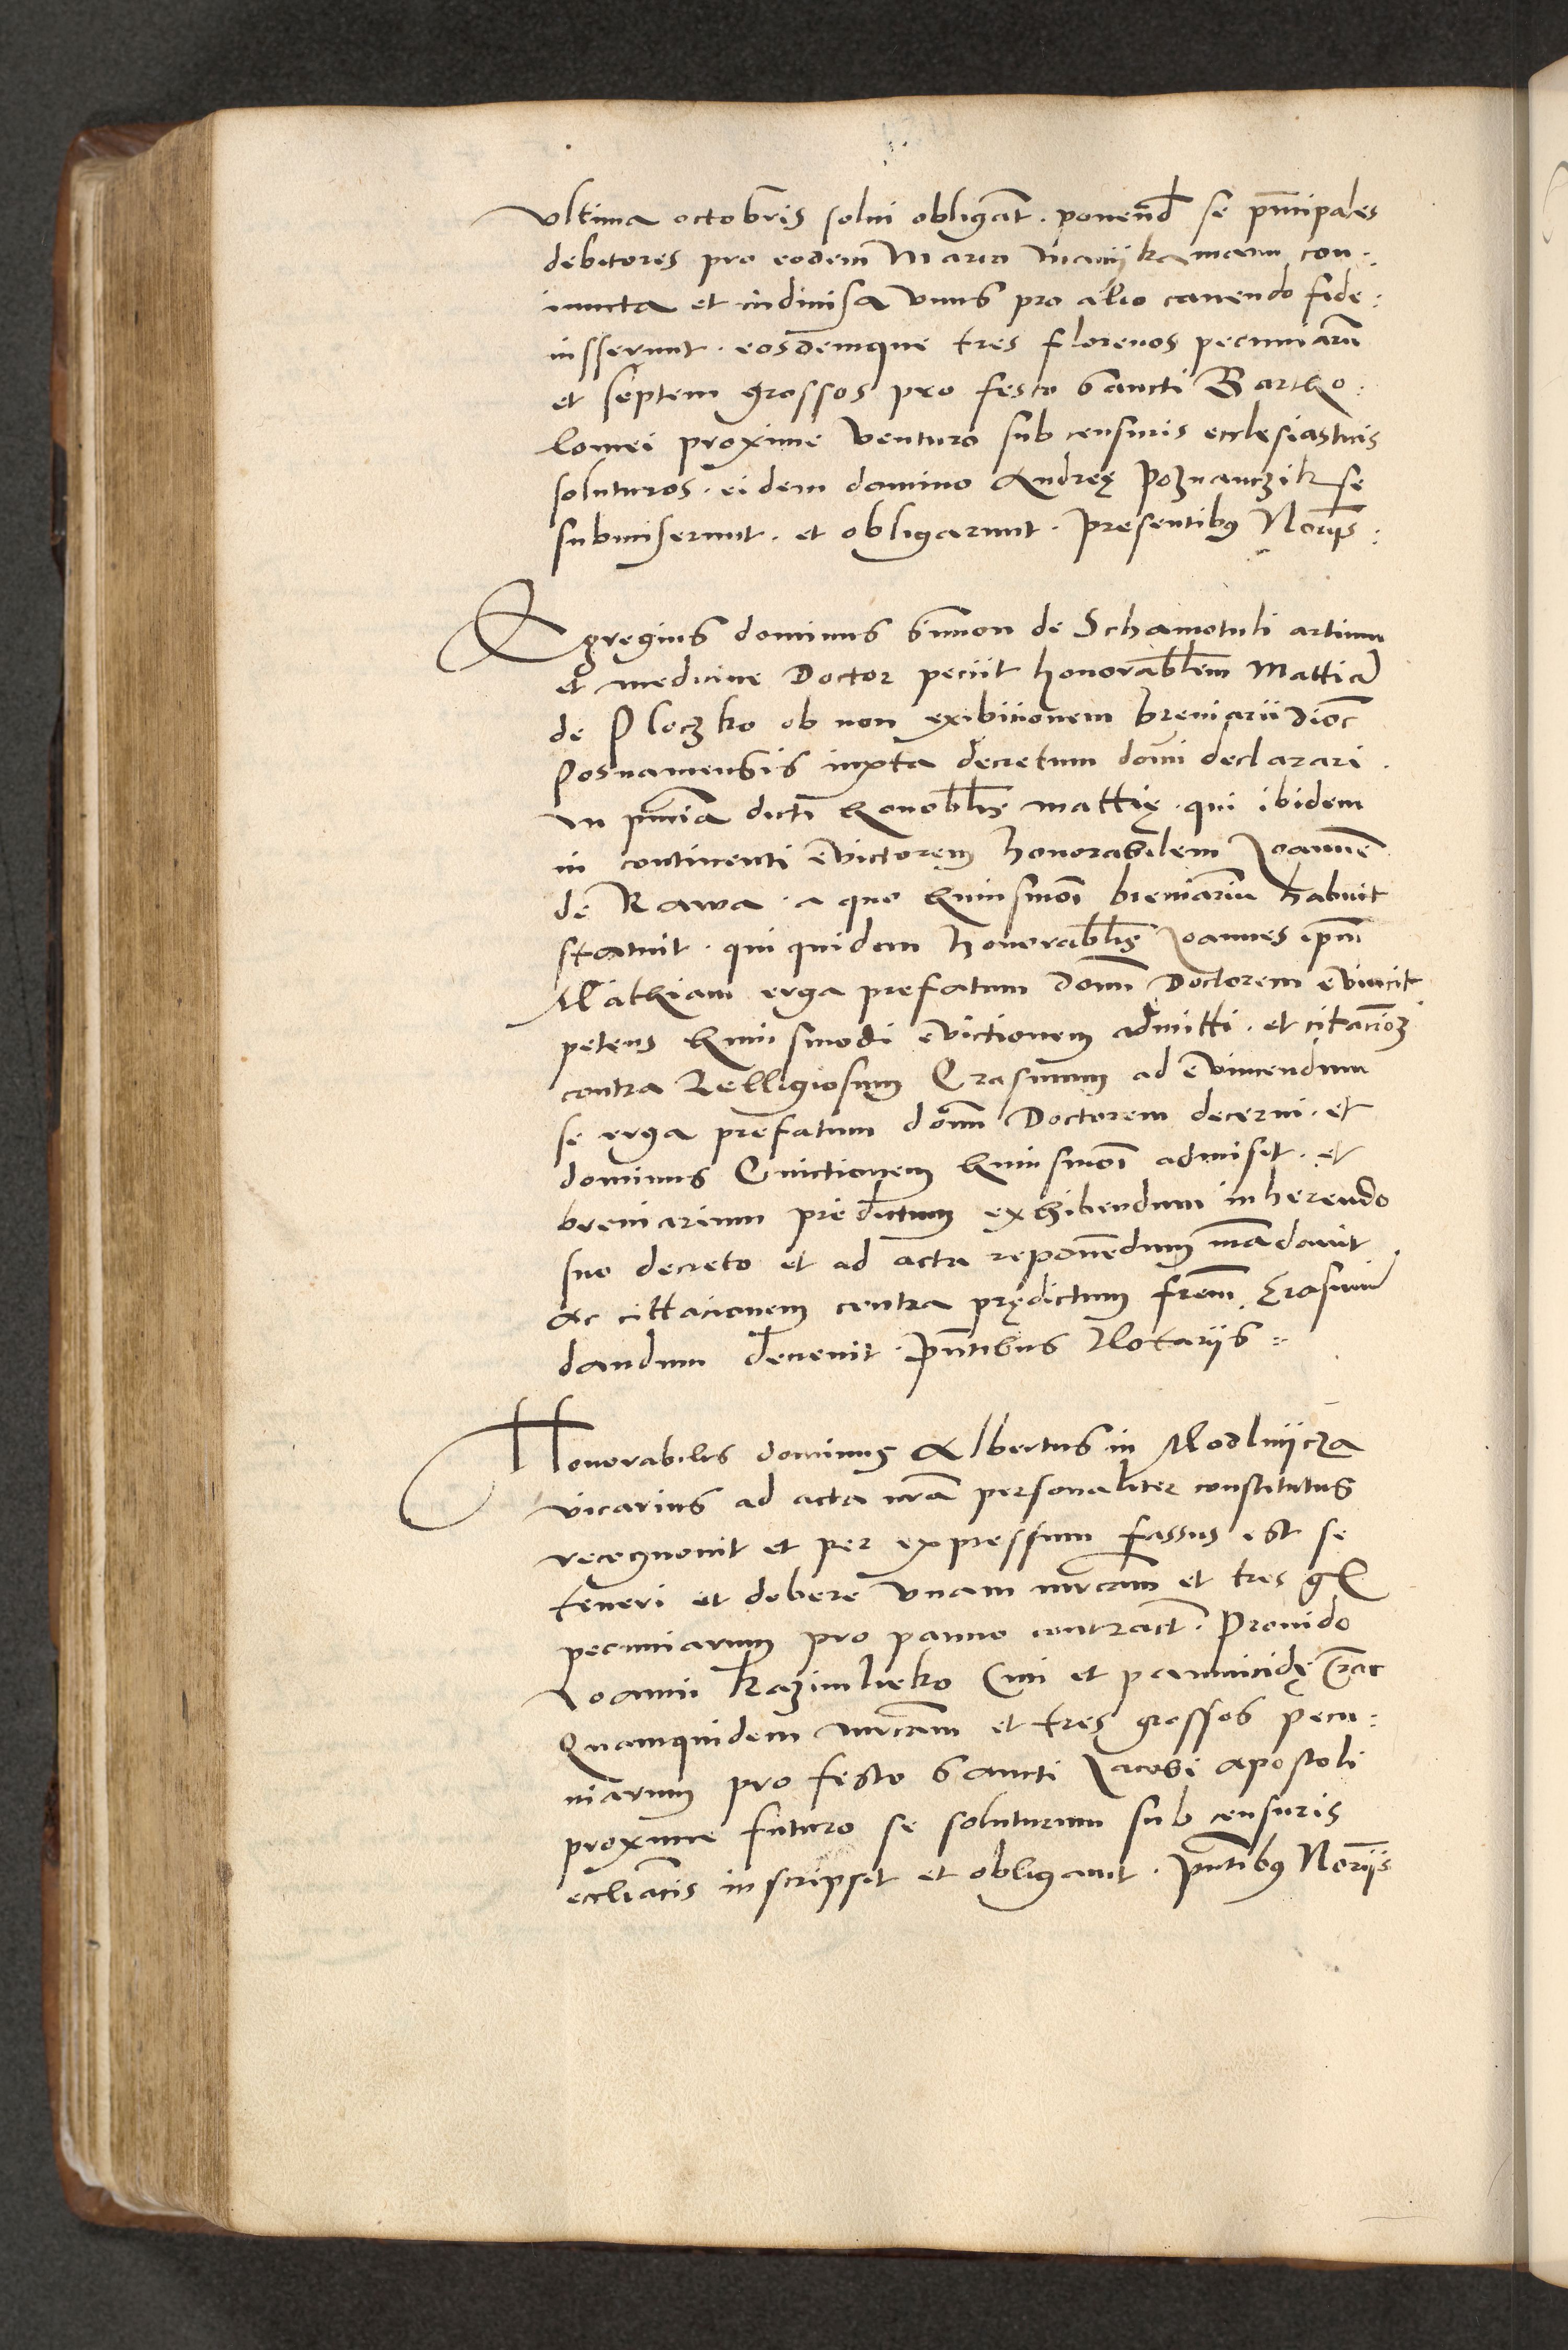 Vltima octobris solui obligant. ponend se principales
debitores pro eodem Marco maniikamanu con:
iuncta et indiuisa vnus pro alio cauendo fide:
iusserunt. eosdemque tres florenos pecuniarū
et septem grossos pro festo sancti Bartho:
lomei proxime venturo sub censuris ecclesiasticis
soluturos. eidem domino Andreę Poznanczik se
submiserunt. et obligarunt. presentibus Noriis:
Egregius dominus Simon de Schamotuli artium
et medicine Doctor peciit honorablem Mattiā
de Ploczko ob non exibicionem breuiarii Dioc
Posnaniensis iuxta decretum domi declarari.
in pncia dicti honoblis mattię. qui ibidem
in continenti euictorem honorabilem Joannē
de Rawa. a quo huiusmoi breuiariū habuit
statuit. qui quidem honorablis Joannes ipm
Mathiam erga prefatum dom̄ Doctorem euincit
petens huiusmodi euictionem admitti. et citacioz
contra Relligiosum Erasmum ad euincendum
se erga prefatum dom̄ Doctorem decerni. et
dominus Euictionem huiusmoi admisit. et
breuiarium predictum exhibendum inherendo
suo decreto et ad acta reponendum mādauit
Ac cittacionem contra prędictum frem Erasmū
dandum decreuit. pn̄tibus Notariis:
Honorabilis dominus Albertus in Modlniicza
vicarius ad acta nrā personaliter constitutus
recognouit et per expressum fassus est se
teneri et debere vnam mrcam et tres gl
pecuniarum pro panno contract. Prouido
Joanni Kazimbrko Ciui et pannicidę Crac
Quamquidem mrcam et tres grossos pecu:
niarum pro festo sancti Jacobi apostoli
proxime futuro se soluturum sub censuris
eccliacis inscripsit et obligauit. pn̄tibus Noriis